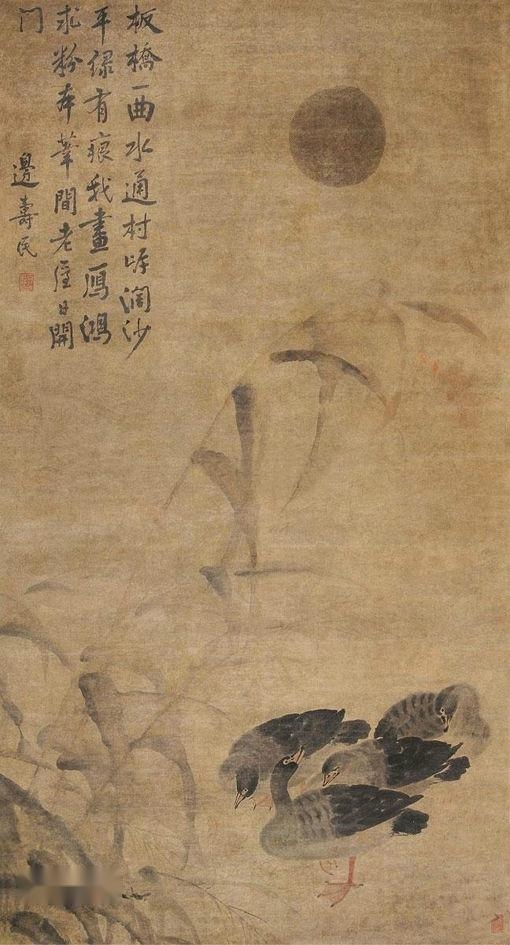 板橋一曲水通村岸濶沙
平緑有痕我畫鴈鴻
求粉本葦間老屋日開
门
邊壽民